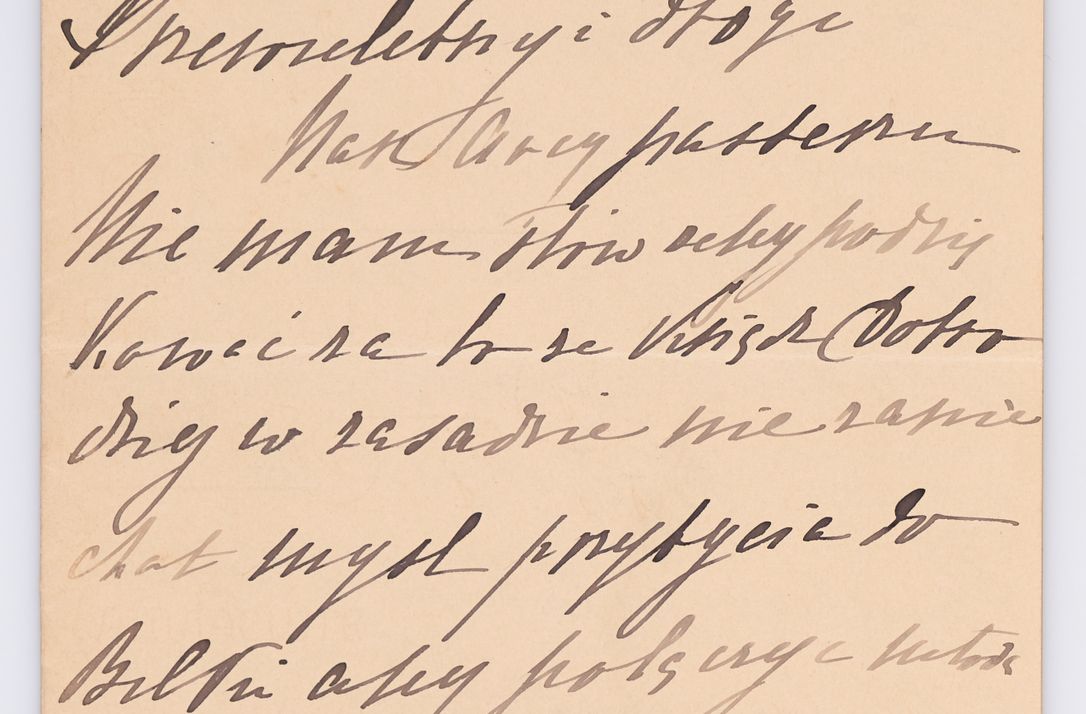 Przewielebny i drogi
Nasz Arcy pasterzu
Nie mam słów żeby podzię
Kować za to że Ksiądz Dobro
dziej w zasadzie nie zanie
chał myśl przybycia do
aby połączyć młodą